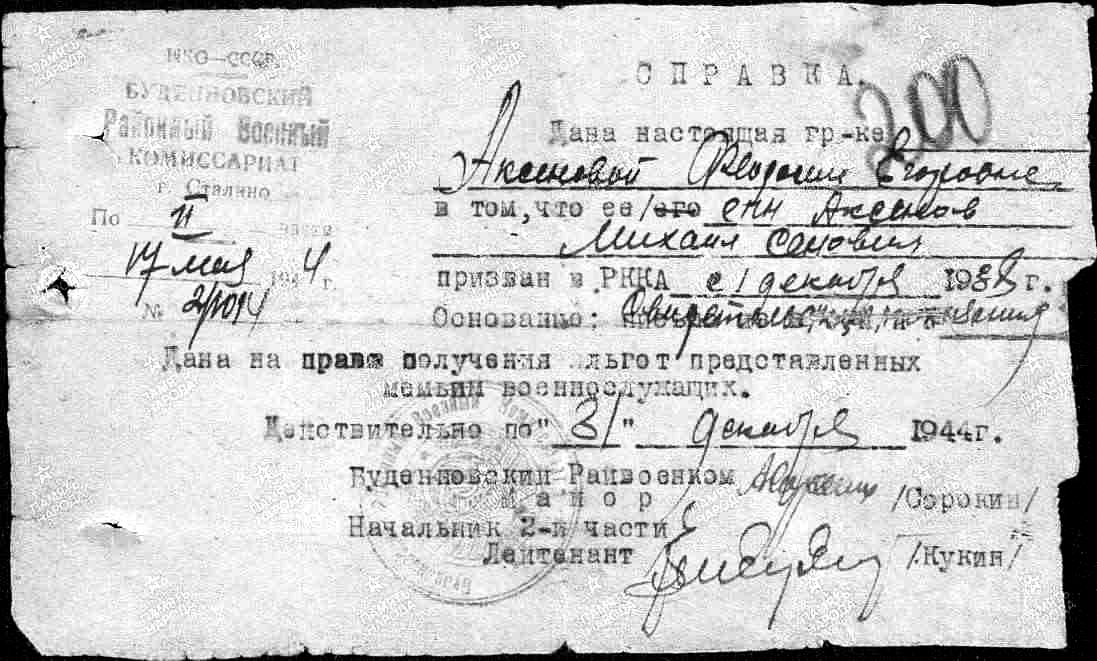 НКО—СССР
БУДЕННОВСКИЙ
Районный Военный
КОМИССАРИАТ
г. Сталино
По II части
17 мая 1944 г.
№
СПРАВКА.
200
Дана настоящая гр-ке
Аксеновой Феодосии Егоровне
в том, что ее/его сын Аксенов
Михаил
призван в РККА с 1 декабря 1938 г.
Основание:
Дана на право получения льгот представленных
семьям военнослужащих.
Действительно по "31" декабря 1944г.
Буденновский Райвоенком
Майор /Сорокин/
Начальник 2-й части
Лейтенант /Кукин/